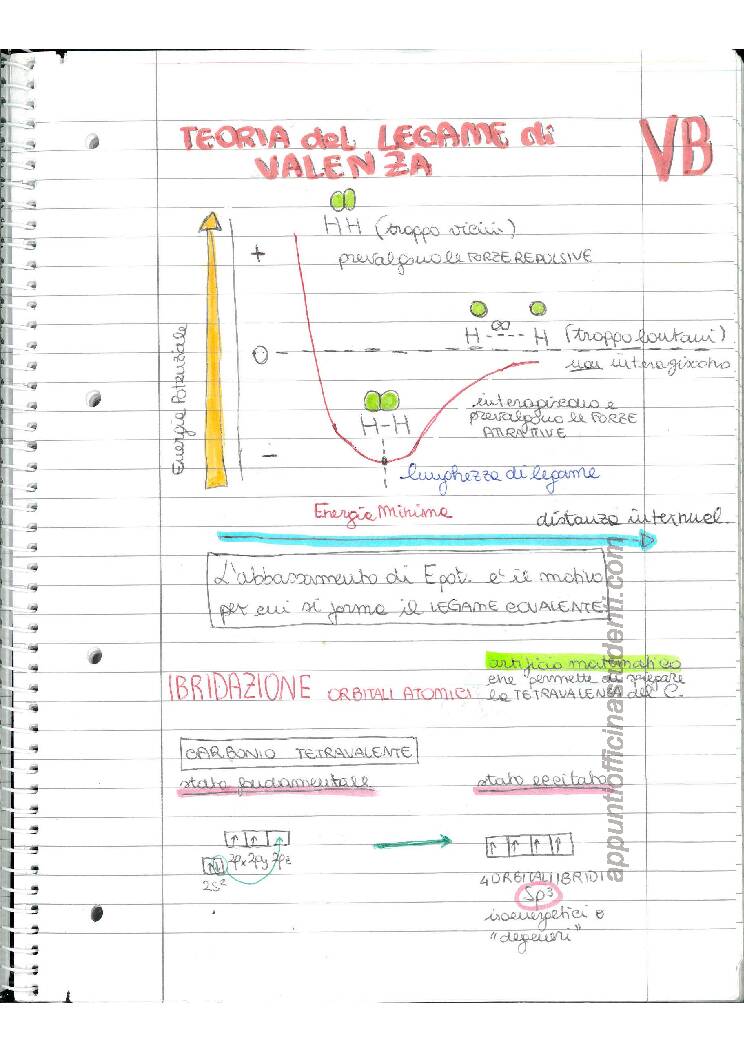 TEORIA del LEGAME di
VALENZA
VB
HH (troppo vicini)
prevalgono le FORZE REPULSIVE
+
H ∞ ---- H (troppo lontani)
0
non interagiscono
Energia Potenziale
interagiscono e
prevalgono le FORZE
ATTRATTIVE
H-H
-
lunghezza di legame
Energia Minima
distanza internucl.
L'abbassamento di Epot. è il motivo
per cui si forma il LEGAME COVALENTE.
artificio matematico
che permette di spiegare
la TETRAVALENZA del C.
IBRIDAZIONE ORBITALI ATOMICI
CARBONIO TETRAVALENTE
stato fondamentale
stato eccitato
2px 2py 2pz
2s²
4 ORBITALI IBRIDI
sp³
isoenergetici o
"degeneri"
appuntiofficinastudenti.com